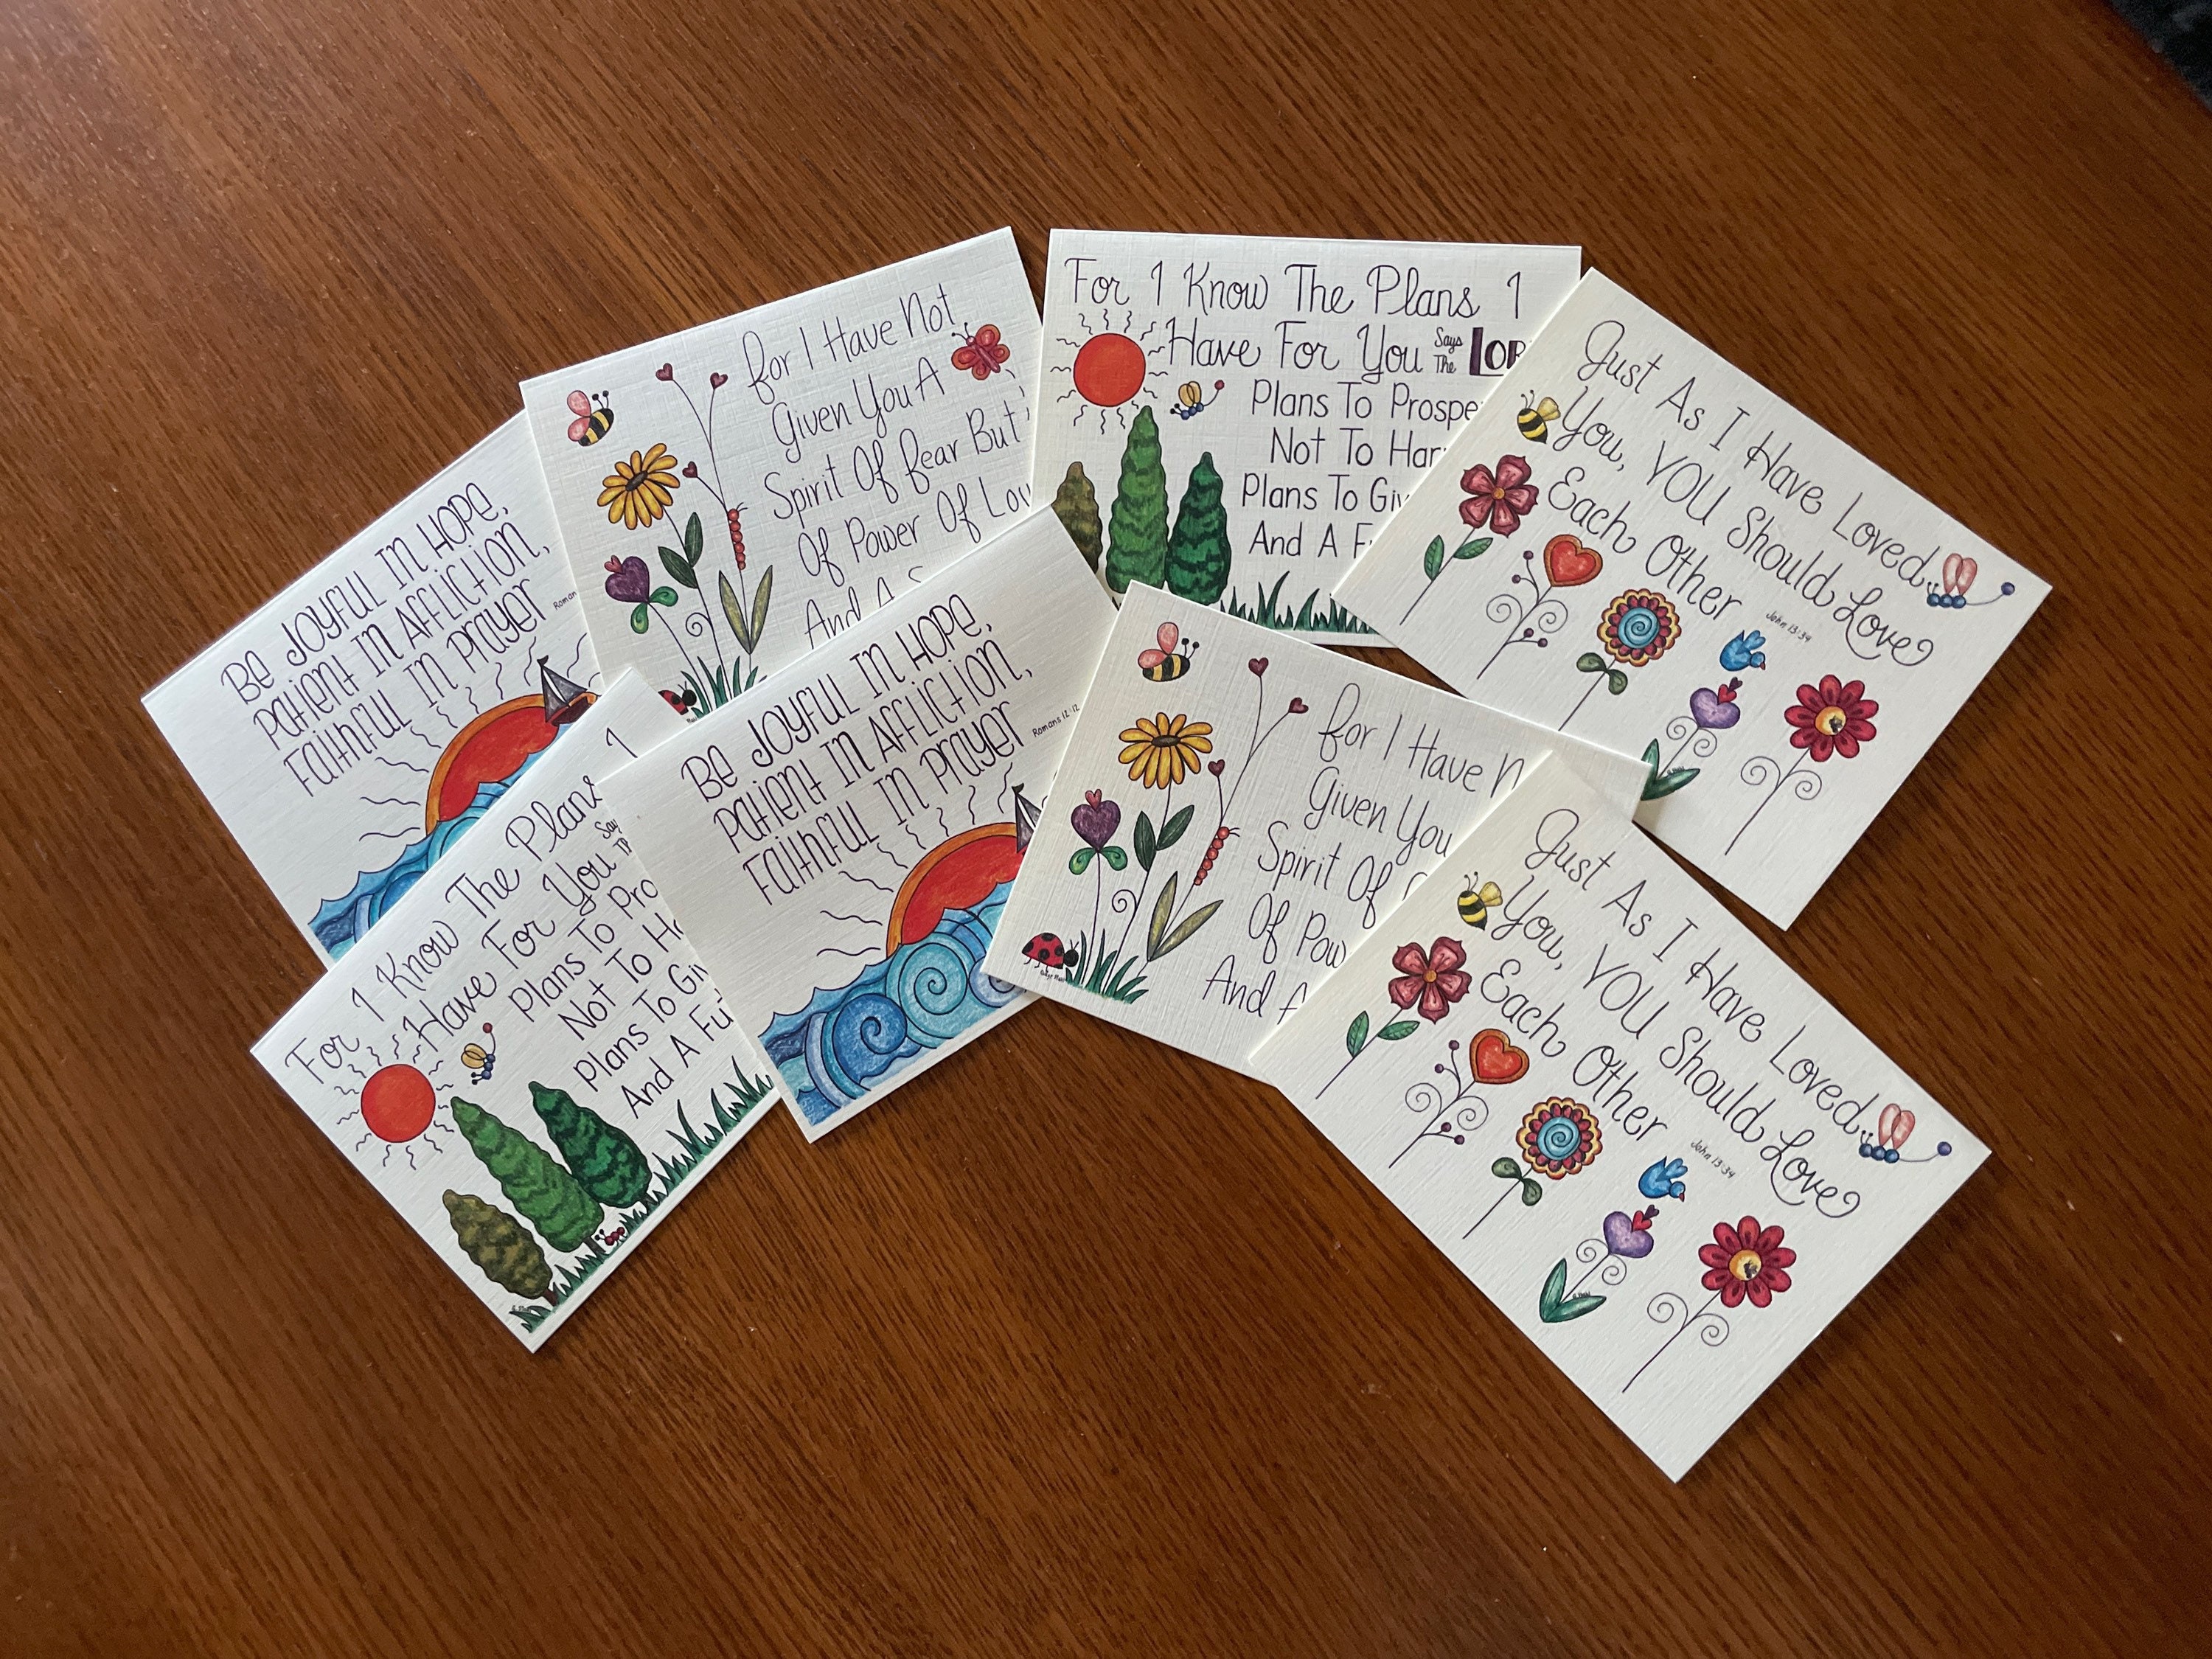 BE JOYFUL IN HOPE,
PATIENT IN AFFLICTION,
FAITHFUL IN PRAYER
Romans
for I Have Not
Given You A
Spirit Of fear But
Of Power Of Lov
And A S
For I Know The Plans I
Have For You Says The LOR
Plans To Prospe
Not To Har
Plans To Giv
And A F
Just As I Have Loved
You, YOU Should Love
Each Other
John 13:34
For I Know The Plans I
Have For You Say Th
Plans To Pro
Not To Ha
Plans To Giv
And A Fu
BE JOYFUL IN HOPE,
PATIENT IN AFFLICTION,
FAITHFUL IN PRAYER
Romans 12:12
for I Have N
Given You
Spirit Of
Of Pow
And A
Just As I Have Loved
You, YOU Should Love
Each Other
John 13:34